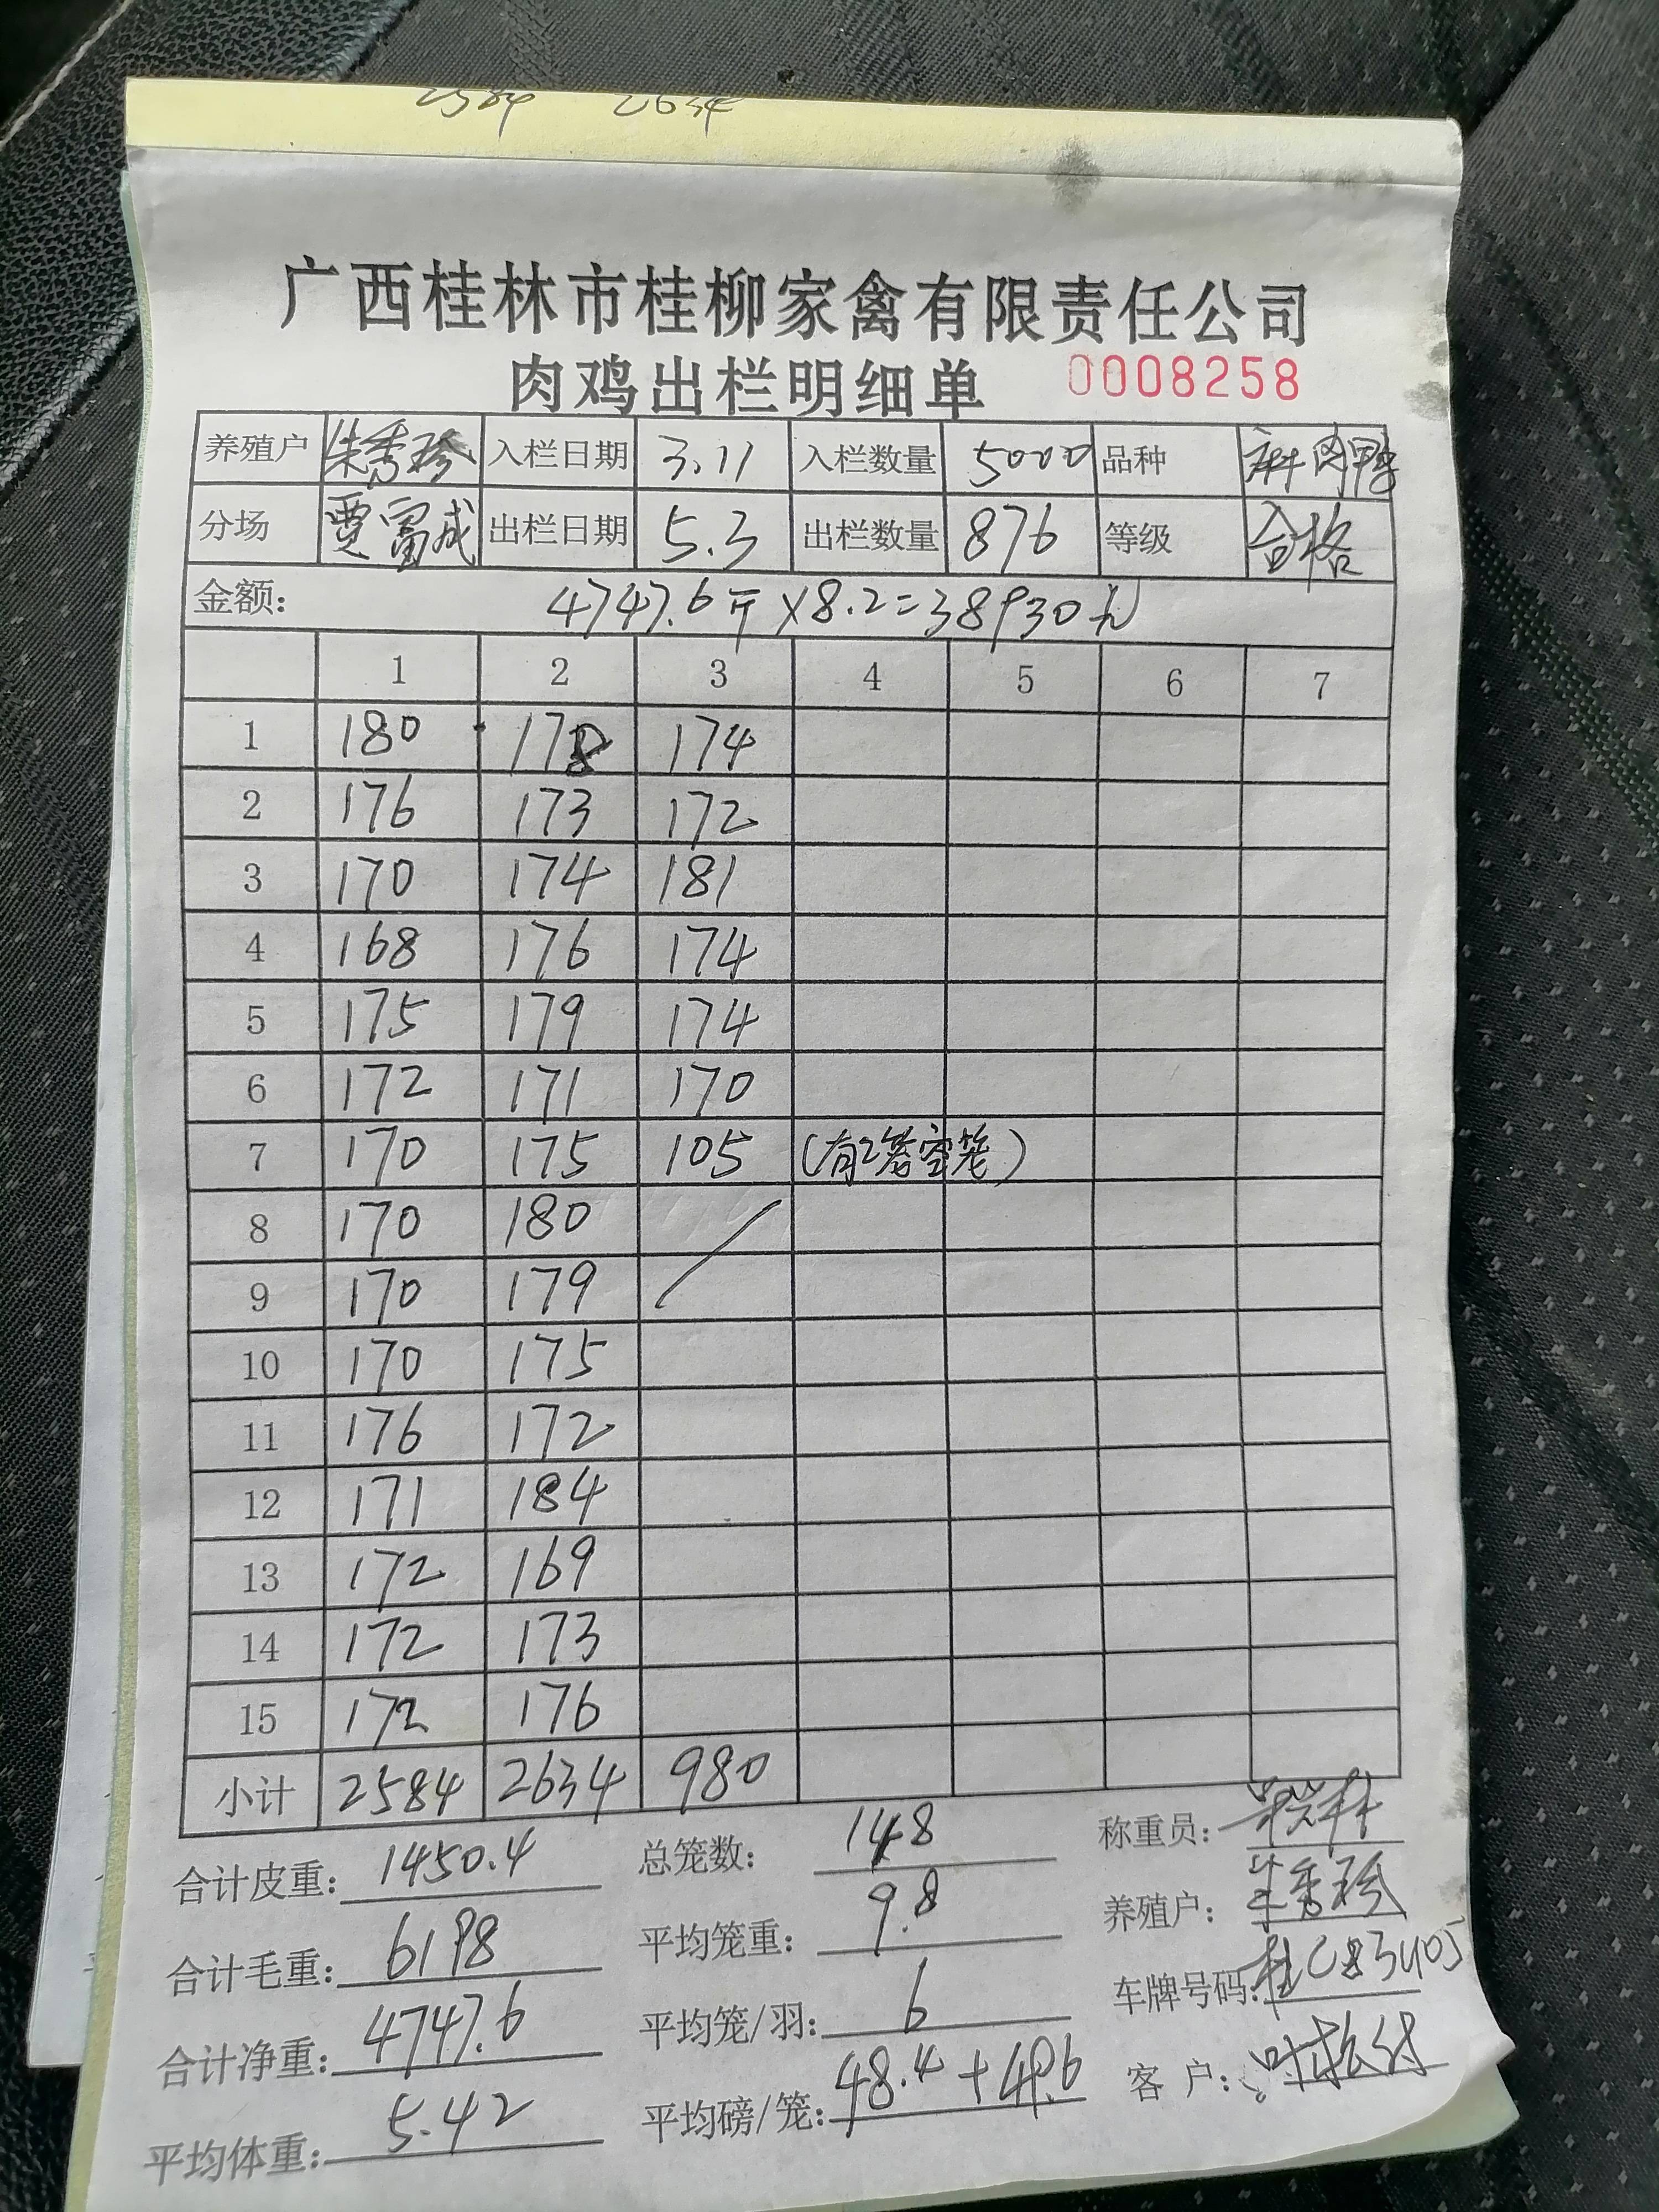 2584 2634
广西桂林市桂柳家禽有限责任公司
肉鸡出栏明细单 0008258
养殖户 朱秀珍 入栏日期 3.11 入栏数量 5000 品种 麻肉鸭
分场 贾富成 出栏日期 5.3 出栏数量 876 等级 合格
金额: 4747.6斤×8.2=38930元
1 2 3 4 5 6 7
1 180 178 174
2 176 173 172
3 170 174 181
4 168 176 174
5 175 179 174
6 172 171 170
7 170 175 105 (有2笼空笼)
8 170 180
9 170 179
10 170 175
11 176 172
12 171 184
13 172 169
14 172 173
15 172 176
小计 2584 2634 980
合计皮重: 1450.4 总笼数: 148 称重员:
合计毛重: 6198 平均笼重: 9.8 养殖户: 朱秀珍
合计净重: 4747.6 平均笼/羽: 6 车牌号码: 桂C83405
平均体重: 5.42 平均磅/笼: 48.4+49.6 客 户: